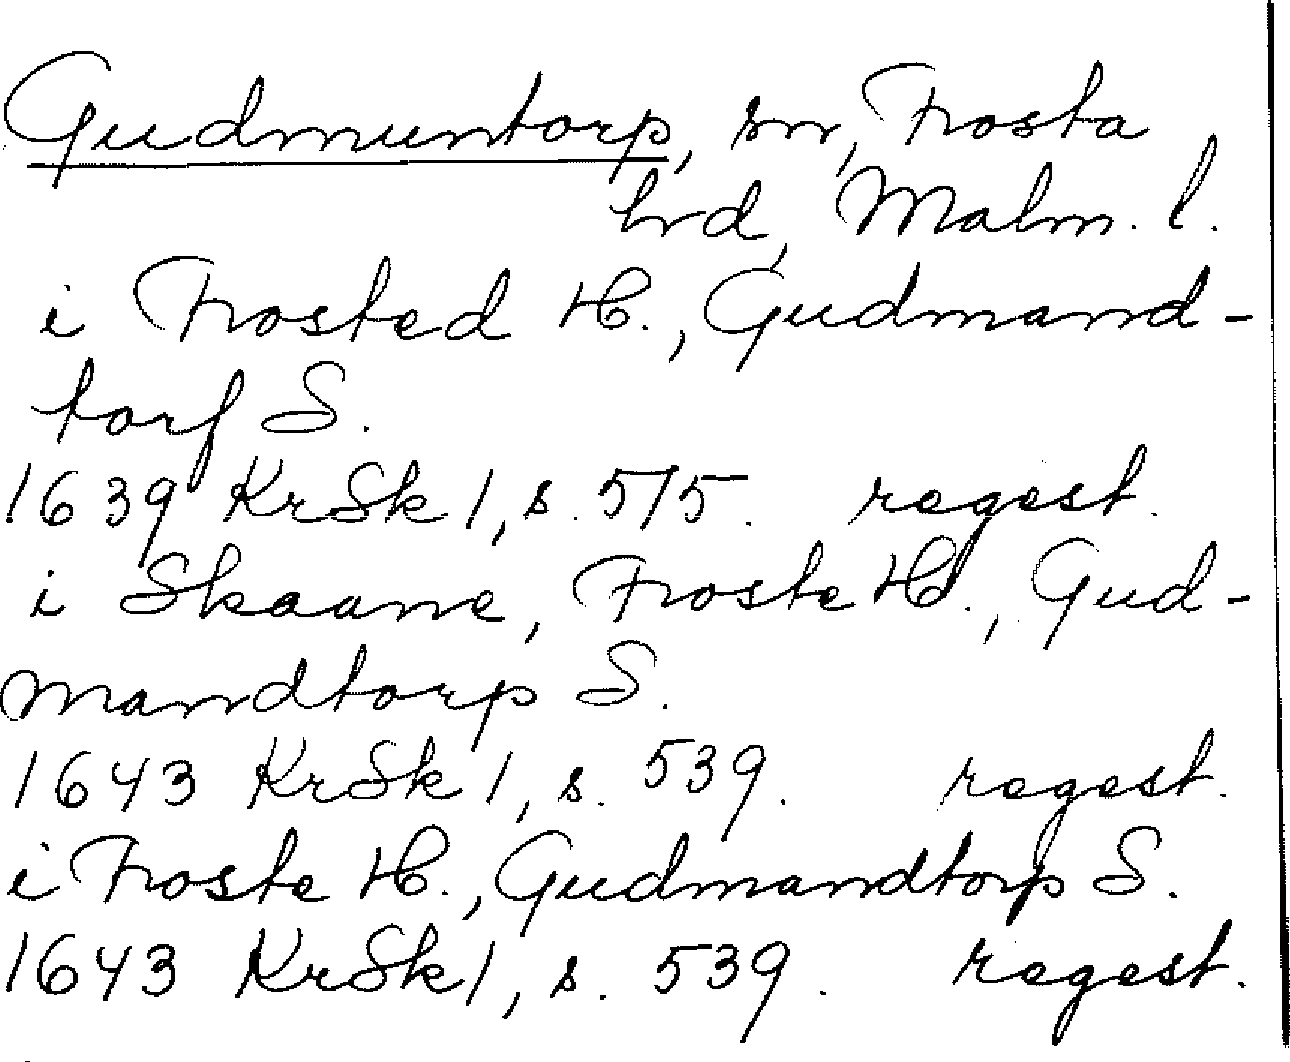 Gudmuntorp, sn, Frosta
hrd, Malm. l.
i Frosted H., Gudmand-
torf S.
1639 KrSk 1, s. 515. regest.
i Skaane, Froste H., Gud-
mandtorp S.
1643 KrSk 1, s. 539. regest.
i Froste H., Gudmandtorp S.
1643 KrSk 1, s. 539. regest.